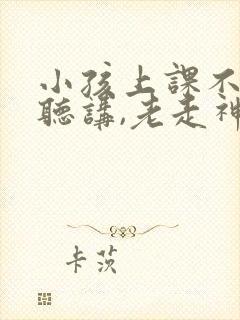 小孩上課不
聽講,老走神
卡茨